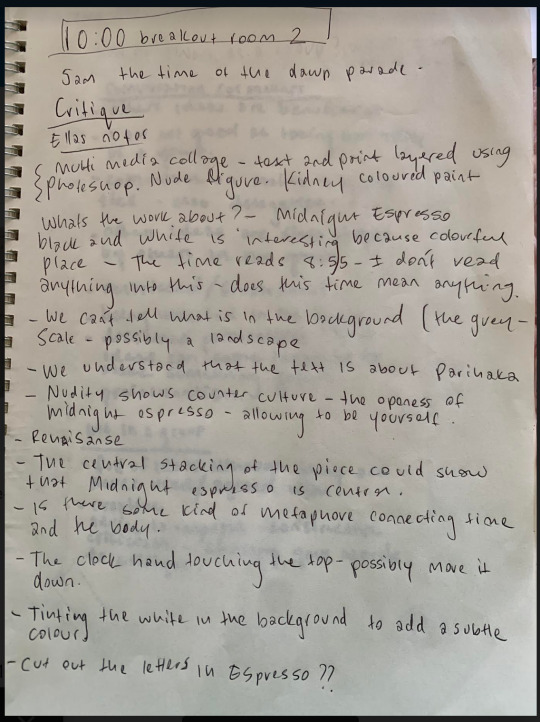 10:00 breakout room 2
5am the time of the dawn parade.
Critique
Ellas notes
Multi media collage - text and print layered using
photoshop. Nude figure. Kidney coloured paint
Whats the work about? - Midnight Espresso
black and white is interesting because colourful
place - The time reads 8:55 - I don't read
anything into this - does this time mean anything.
- We can't tell what is in the background (the grey-
scale - possibly a landscape
- We understand that the text is about Parihaka
- Nudity shows counter culture - the openess of
midnight espresso - allowing to be yourself.
- Renaisanse
- The central stacking of the piece could show
that Midnight espresso is central.
- Is there some kind of metaphore connecting time
and the body.
- The clock hand touching the top - possibly move it
down.
- Tinting the white in the background to add a subtle
colour
- Cut out the letters in Espresso ??